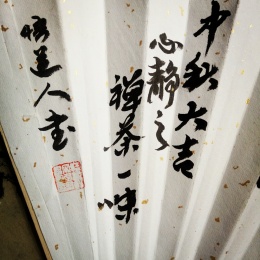 中秋大吉
心静之
禅茶一味
悟道人书